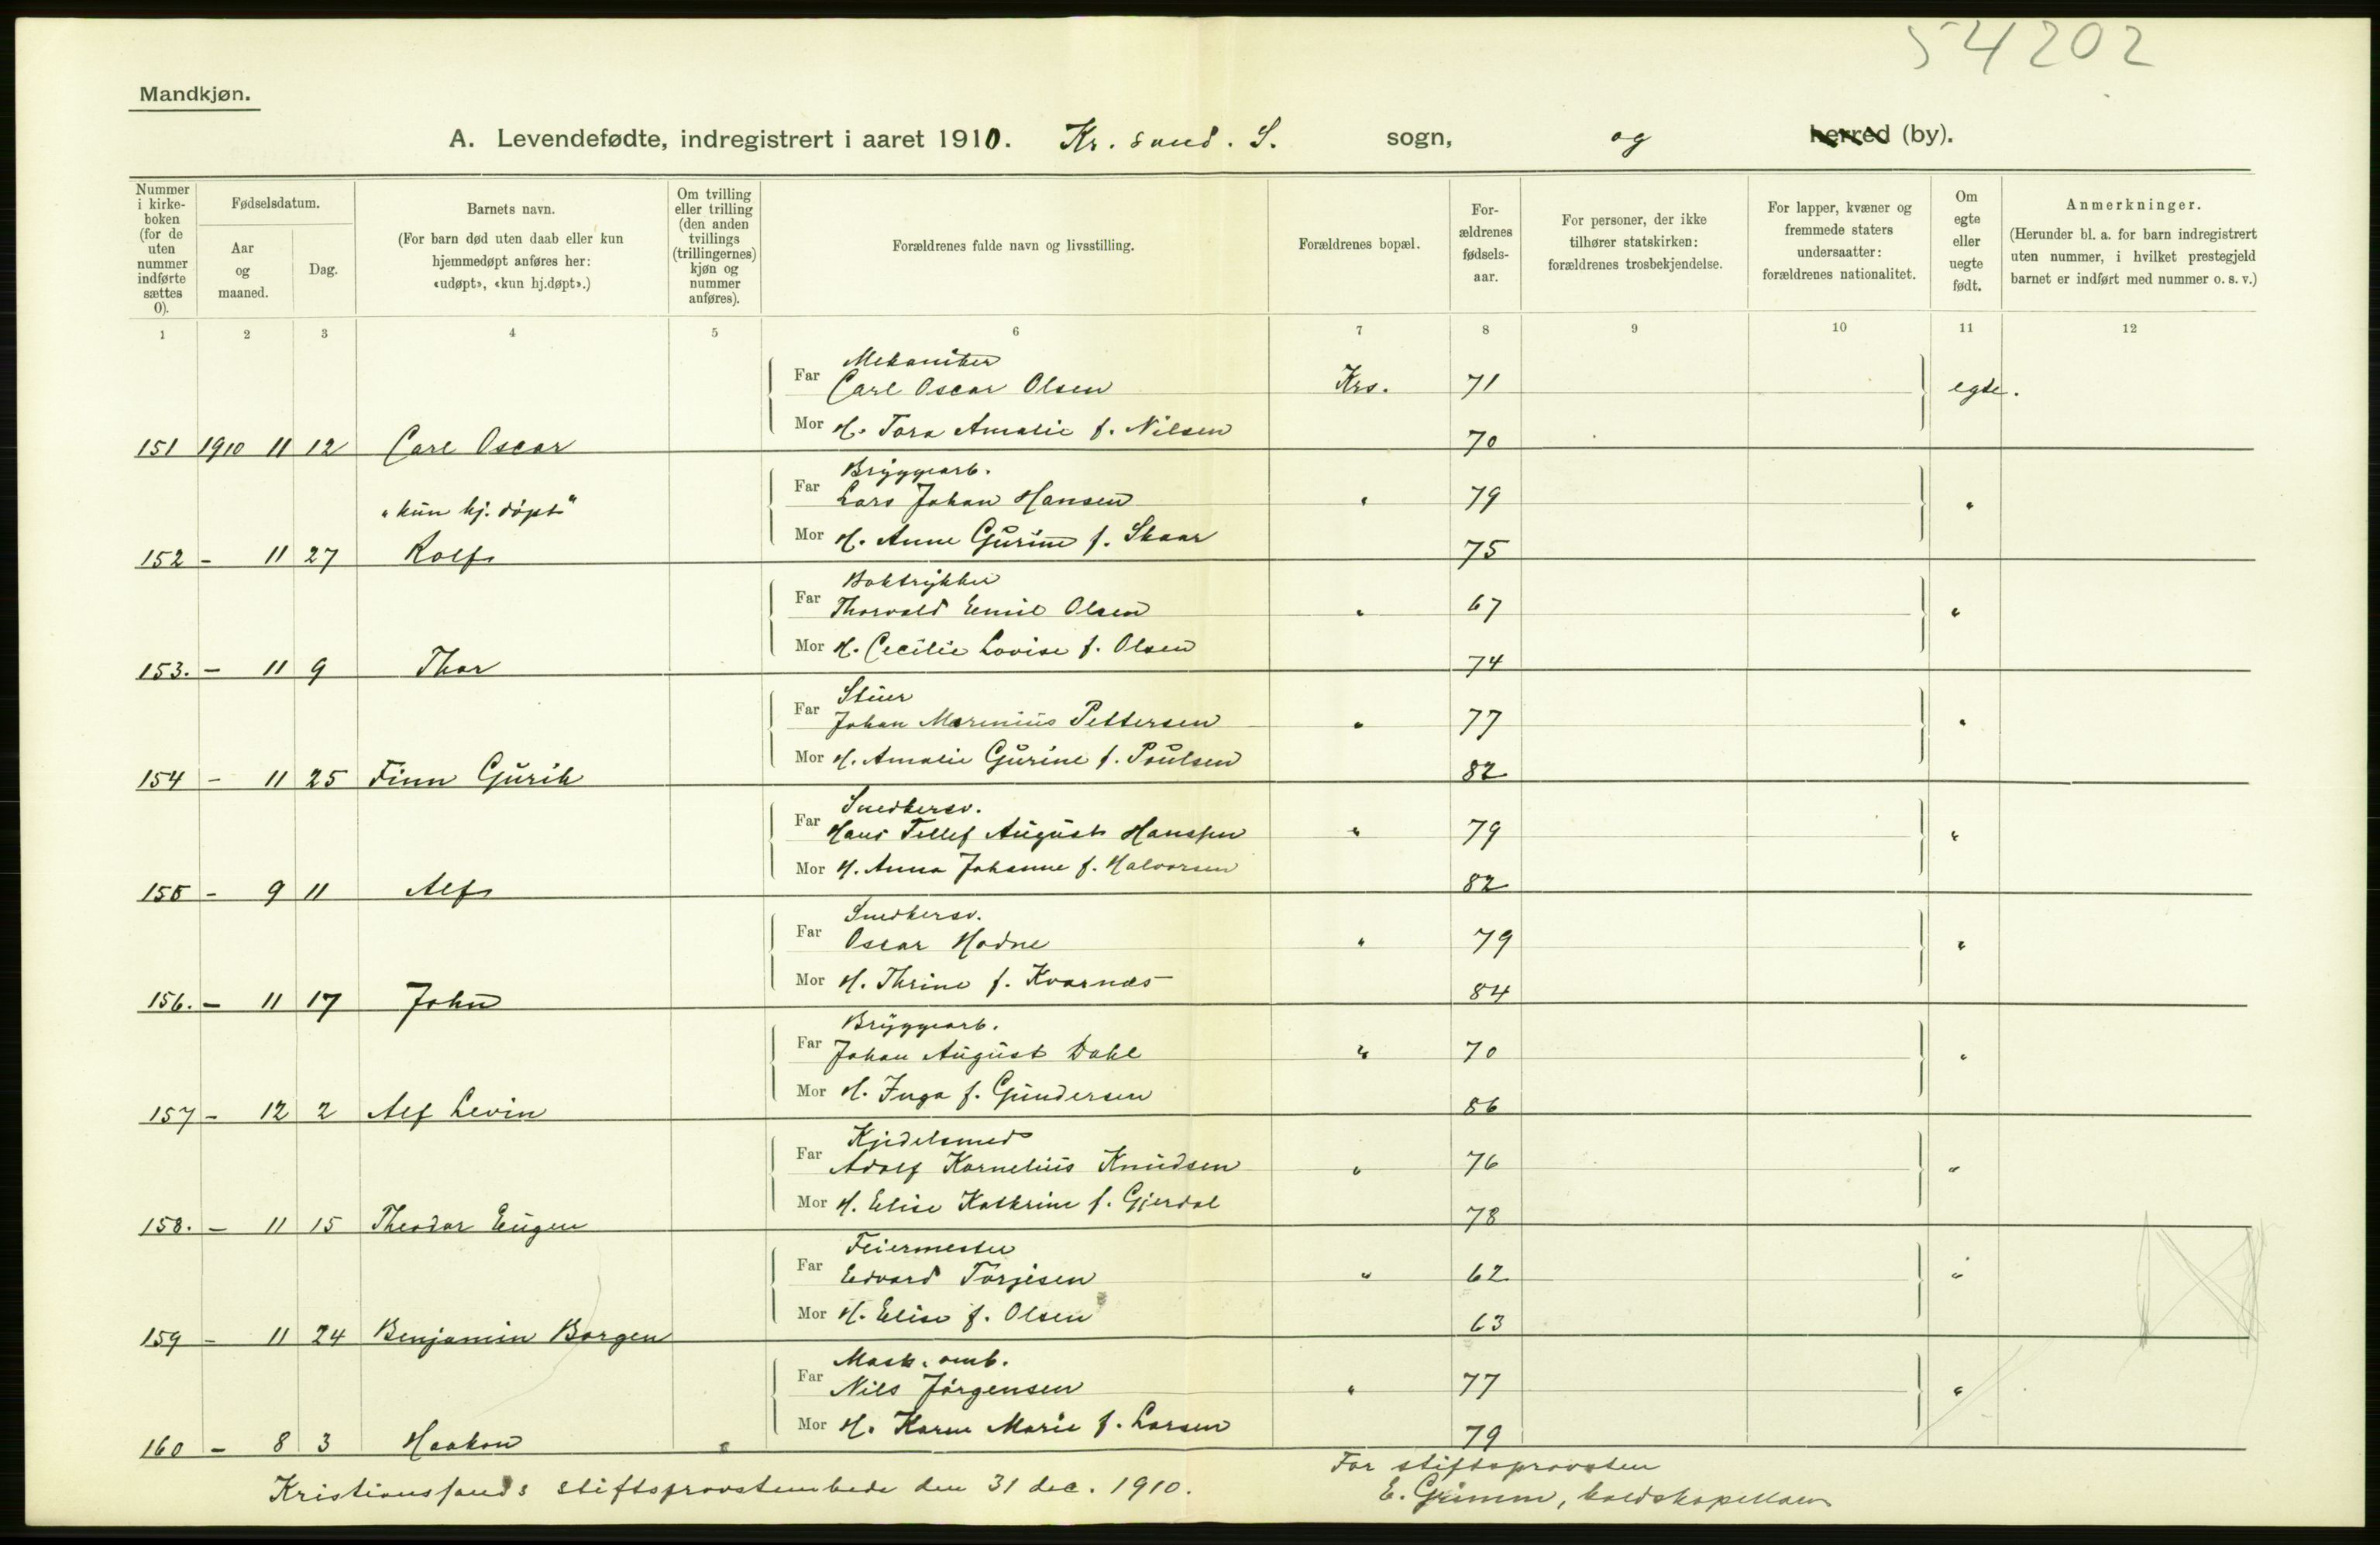 54202
Mandkjøn.
A. Levendefødte, indregistrert i aaret 1910. Kr. sand. S. sogn, og herred (by).
Nummer i kirke-boken (for de uten nummer indførte sættes 0).
Fødselsdatum.
Aar og maaned.
Dag.
Barnets navn.
(For barn død uten daab eller kun hjemmedøpt anføres her: «udøpt», «kun hj.døpt».)
Om tvilling eller trilling (den anden tvillings (trillingernes) kjøn og nummer anføres).
Forældrenes fulde navn og livsstilling.
Forældrenes bopæl.
For-ældrenes fødsels-aar.
For personer, der ikke tilhører statskirken: forældrenes trosbekjendelse.
For lapper, kvæner og fremmede staters undersaatter: forældrenes nationalitet.
Om egte eller uegte født.
Anmerkninger.
(Herunder bl. a. for barn indregistrert uten nummer, i hvilket prestegjeld barnet er indført med nummer o. s. v.)
1 2 3 4 5 6 7 8 9 10 11 12
Mekaniker
Far Carl Oscar Olsen Krs. 71 egte.
Mor H. Tora Amalie f. Nilsen 70
151 1910 11 12 Carl Oscar
Bryggearb.
Far Lars Johan Hansen " 79 "
"kun hj. døpt"
Mor H. Anne Gurine f. Skaar 75
152 - 11 27 Rolf
Boktrykker
Far Thorvald Emil Olsen " 67 "
Mor H. Cecilie Lovise f. Olsen 74
153. - 11 9 Thor
Stuer
Far Johan Marenius Pettersen " 77 "
Mor H. Amalie Gurine f. Poulsen 82
154 - 11 25 Finn Gurik
Snedkersv.
Far Hans Tellef August Hanssen " 79 "
Mor H. Anna Johanne f. Halvorsen 82
155 - 9 11 Alf
Snedkersv.
Far Oscar Hodne " 79 "
Mor H. Thrine f. Kvarnæs 84
156. - 11 17 John
Bryggearb.
Far Johan August Dahl " 70 "
Mor H. Inga f. Gundersen 86
157 - 12 2 Alf Levin
Kjedelsmed
Far Adolf Kornelius Knudsen " 76 "
Mor H. Elise Kathrine f. Gjerdal 78
158. - 11 15 Theodor Eugen
Feiermester
Far Edvard Torjesen " 62 "
Mor H. Elise f. Olsen 63
159 - 11 24 Benjamin Borgen
Mask. omb.
Far Nils Jørgensen " 77 "
Mor H. Karen Marie f. Larsen 79
160 - 8 3 Haakon
Kristianssands stiftsprovstembede den 31 dec. 1910.
For stiftsprovsten
E. Grimm, kaldskapellan